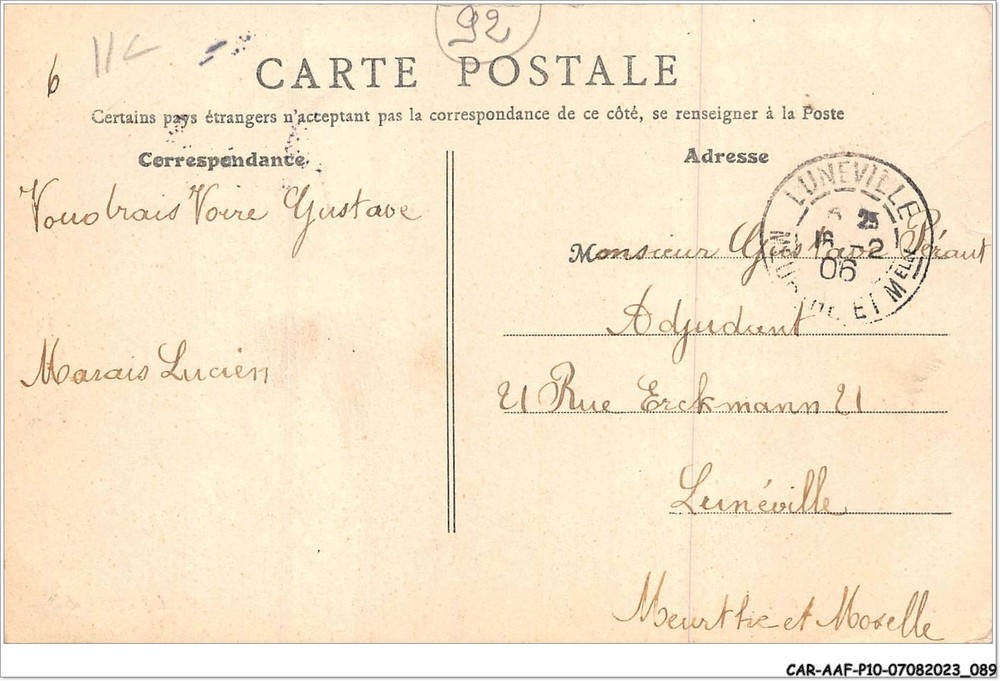 6
11c
92
CARTE POSTALE
Certains pays étrangers n'acceptant pas la correspondance de ce côté, se renseigner à la Poste
Correspondance
Voudrais Voire Gustave
Marais Lucien
Adresse
LUNEVILLE
25
16 -2
06
ET Melle
Monsieur Gustave
Adjudant
21 Rue Erckmann 21
Lunéville
Meurthe et Moselle
CAR-AAF-P10-07082023_089